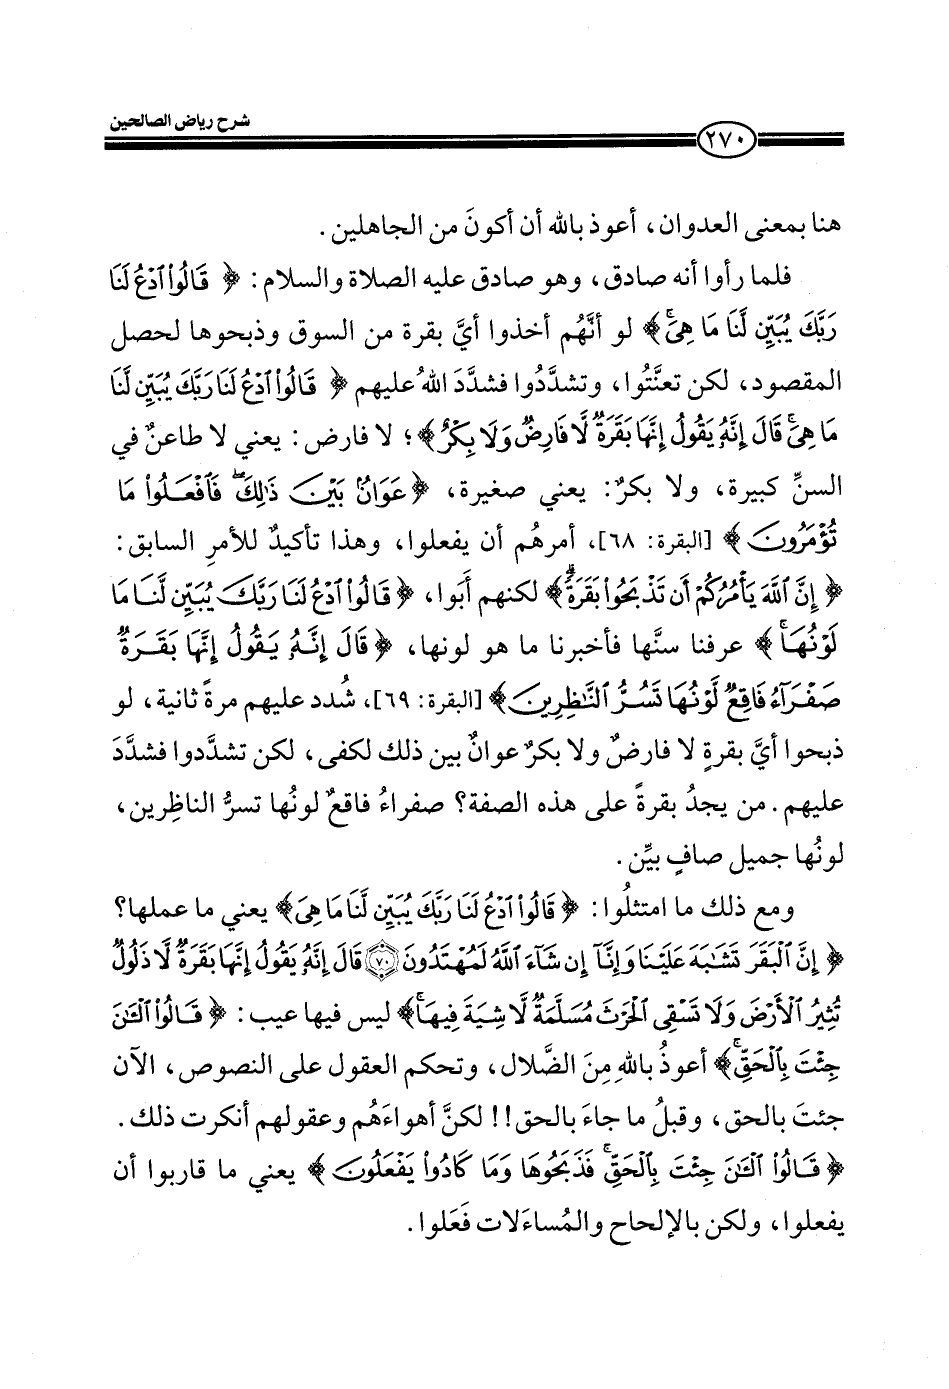 شرح رياض الصالحين
٢٧٠
هنا بمعنى العدوان، أعوذ بالله أن أكونَ من الجاهلين.
فلما رأوا أنه صادق، وهو صادق عليه الصلاة والسلام: ﴿ قَالُوا۟ ٱدْعُ لَنَا
رَبَّكَ يُبَيِّن لَّنَا مَا هِىَۚ﴾ لو أنَّهُم أخذوا أيَّ بقرة من السوق وذبحوها لحصل
المقصود، لكن تعنَّتُوا، وتشدَّدُوا فشدَّدَ اللهُ عليهم ﴿ قَالُوا۟ ٱدْعُ لَنَا رَبَّكَ يُبَيِّن لَّنَا
مَا هِىَۚ قَالَ إِنَّهُۥ يَقُولُ إِنَّهَا بَقَرَةٌ لَّا فَارِضٌ وَلَا بِكْرٌ﴾؛ لا فارض: يعني لا طاعنٌ في
السنِّ كبيرة، ولا بكرٌ: يعني صغيرة، ﴿عَوَانٌۢ بَيْنَ ذَٰلِكَۖ فَٱفْعَلُوا۟ مَا
تُؤْمَرُونَ﴾ [البقرة: ٦٨]، أمرهُم أن يفعلوا، وهذا تأكيدٌ للأمرِ السابق:
﴿ إِنَّ ٱللَّهَ يَأْمُرُكُمْ أَن تَذْبَحُوا۟ بَقَرَةًۖ﴾ لكنهم أَبَوا، ﴿قَالُوا۟ ٱدْعُ لَنَا رَبَّكَ يُبَيِّن لَّنَا مَا
لَوْنُهَاۚ﴾ عرفنا سنَّها فأخبرنا ما هو لونها، ﴿قَالَ إِنَّهُۥ يَقُولُ إِنَّهَا بَقَرَةٌ
صَفْرَآءُ فَاقِعٌ لَّوْنُهَا تَسُرُّ ٱلنَّٰظِرِينَ﴾ [البقرة: ٦٩]، شُدد عليهم مرةً ثانية، لو
ذبحوا أيَّ بقرةٍ لا فارضٌ ولا بكرٌ عوانٌ بين ذلك لكفى، لكن تشدَّدوا فشدَّدَ
عليهم. من يجدُ بقرةً على هذه الصفة؟ صفراءُ فاقعٌ لونُها تسرُّ الناظِرين،
لونُها جميل صافٍ بيِّن.
ومع ذلك ما امتثلُوا: ﴿ قَالُوا۟ ٱدْعُ لَنَا رَبَّكَ يُبَيِّن لَّنَا مَا هِىَ﴾ يعني ما عملها؟
﴿ إِنَّ ٱلْبَقَرَ تَشَٰبَهَ عَلَيْنَا وَإِنَّآ إِن شَآءَ ٱللَّهُ لَمُهْتَدُونَ ٧٠ قَالَ إِنَّهُۥ يَقُولُ إِنَّهَا بَقَرَةٌ لَّا ذَلُولٌ
تُثِيرُ ٱلْأَرْضَ وَلَا تَسْقِى ٱلْحَرْثَ مُسَلَّمَةٌ لَّا شِيَةَ فِيهَاۚ﴾ ليس فيها عيب: ﴿ قَالُوا۟ ٱلْـَٰٔنَ
جِئْتَ بِٱلْحَقِّۚ﴾ أعوذُ باللهِ مِنَ الضَّلال، وتحكم العقول على النصوص، الآن
جئتَ بالحق، وقبلُ ما جاءَ بالحق!! لكنَّ أهواءَهُم وعقولهم أنكرت ذلك.
﴿ قَالُوا۟ ٱلْـَٰٔنَ جِئْتَ بِٱلْحَقِّۚ فَذَبَحُوهَا وَمَا كَادُوا۟ يَفْعَلُونَ﴾ يعني ما قاربوا أن
يفعلوا، ولكن بالإلحاح والمُساءَلات فَعَلوا.